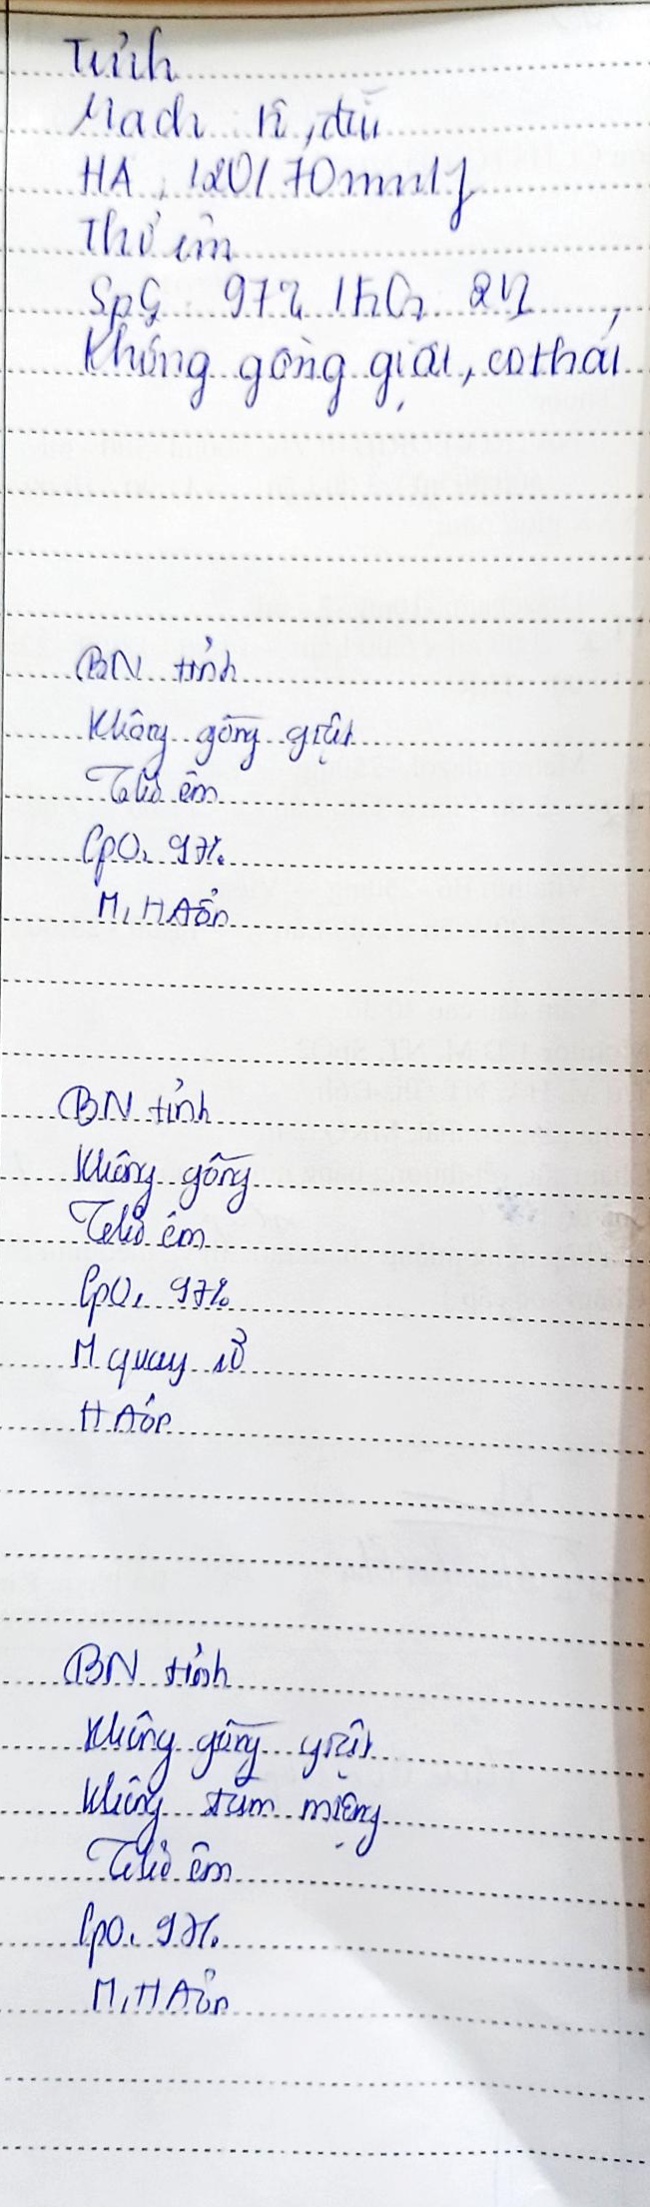 Tỉnh
Mạch rõ, đều
HA: 120/70mmHg
Thở êm
SpO2 97%
Không gồng giật, co thắt
BN tỉnh
Không gồng giật
Thở êm
SpO2 97%
M, HA ổn
BN tỉnh
Không gồng
Thở êm
SpO2 97%
M quay rõ
HA ổn
BN tỉnh
Không gồng giật
Không trùm miệng
Thở êm
SpO2 97%
M, HA ổn